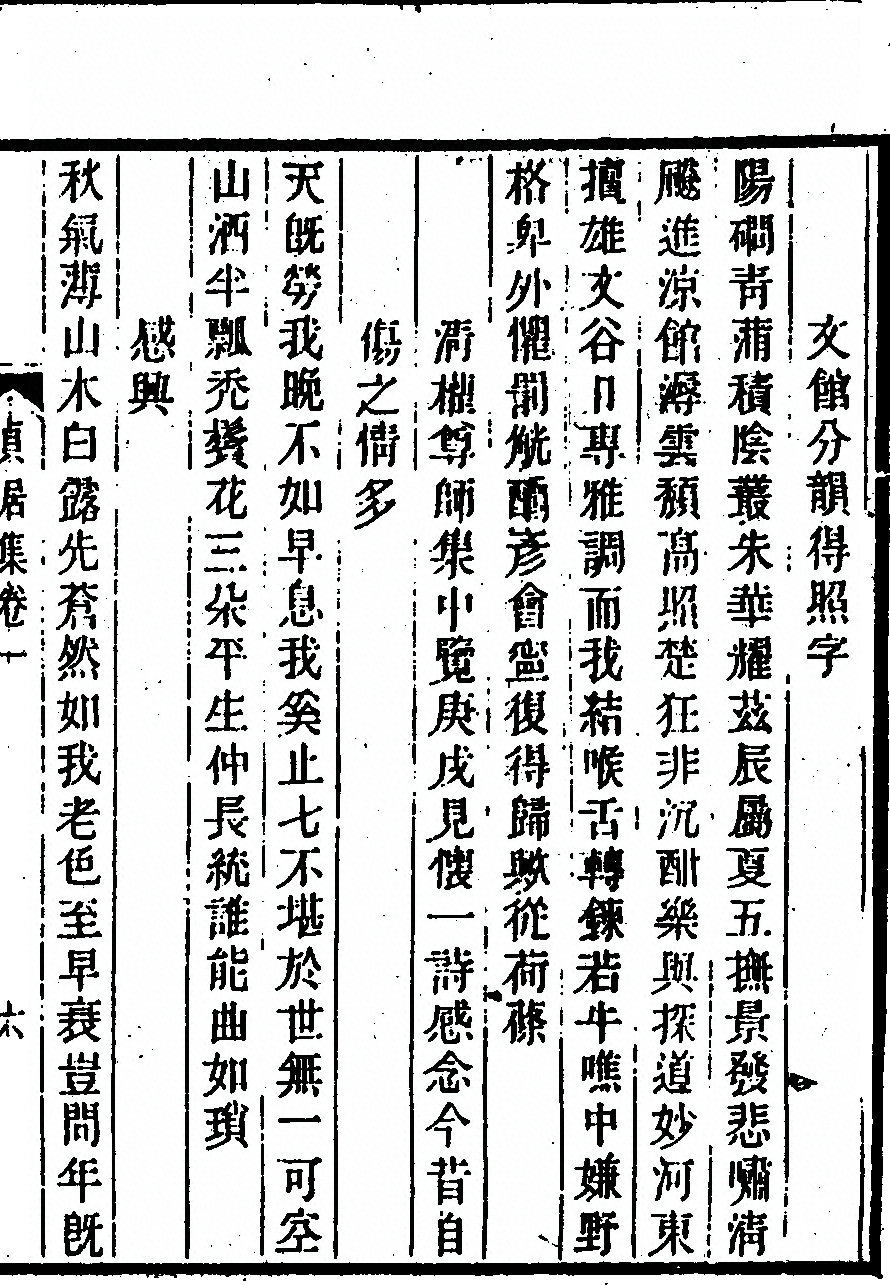 文館分韻得照字
陽磵青蒲積陰叢朱華耀茲辰屬夏五撫景發悲嘯淸
颸進涼館溽雲頹高照楚狂非沉酣樂與探道妙河東
擅雄文谷口專雅調而我結喉舌轉鍊若牛噍中嫌野
格卑外懼罰觥酾彥會寧復得歸歟從荷蓧
淸權尊師集中覽庚戌見懷一詩感念今昔自
傷之情多
天旣勞我晚不如早息我奚止七不堪於世無一可空
山酒半瓢禿鬢花三朵平生仲長統誰能曲如瑣
感興
秋氣薄山木白露先蒼然如我老色至早衰豈問年旣
貞居集卷一 六